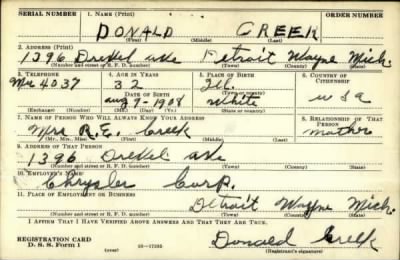 SERIAL NUMBER 1. NAME (Print) ORDER NUMBER
DONALD CREEK
(First) (Middle) (Last)
2. ADDRESS (Print)
1396 Drexel ave Detroit Wayne Mich.
(Number and street or R. F. D. number) (Town) (County) (State)
3. TELEPHONE 4. AGE IN YEARS 5. PLACE OF BIRTH 6. COUNTRY OF CITIZENSHIP
4037 32 Ill.
DATE OF BIRTH
Aug 9 - 1908 White U S A
(Exchange) (Number) (Mo.) (Day) (Yr.) (State or country)
7. NAME OF PERSON WHO WILL ALWAYS KNOW YOUR ADDRESS 8. RELATIONSHIP OF THAT PERSON
Mrs R.E. Creek mother
(Mr., Mrs., Miss) (First) (Middle) (Last)
9. ADDRESS OF THAT PERSON
1396 Drexel ave
(Number and street or R. F. D. number) (Town) (County) (State)
10. EMPLOYER'S NAME
Chrysler Corp.
11. PLACE OF EMPLOYMENT OR BUSINESS
Detroit Wayne Mich.
(Number and street or R. F. D. number) (Town) (County) (State)
I AFFIRM THAT I HAVE VERIFIED ABOVE ANSWERS AND THAT THEY ARE TRUE.
REGISTRATION CARD
D. S. S. FORM 1 (over) Donald Creek
(Registrant's signature)